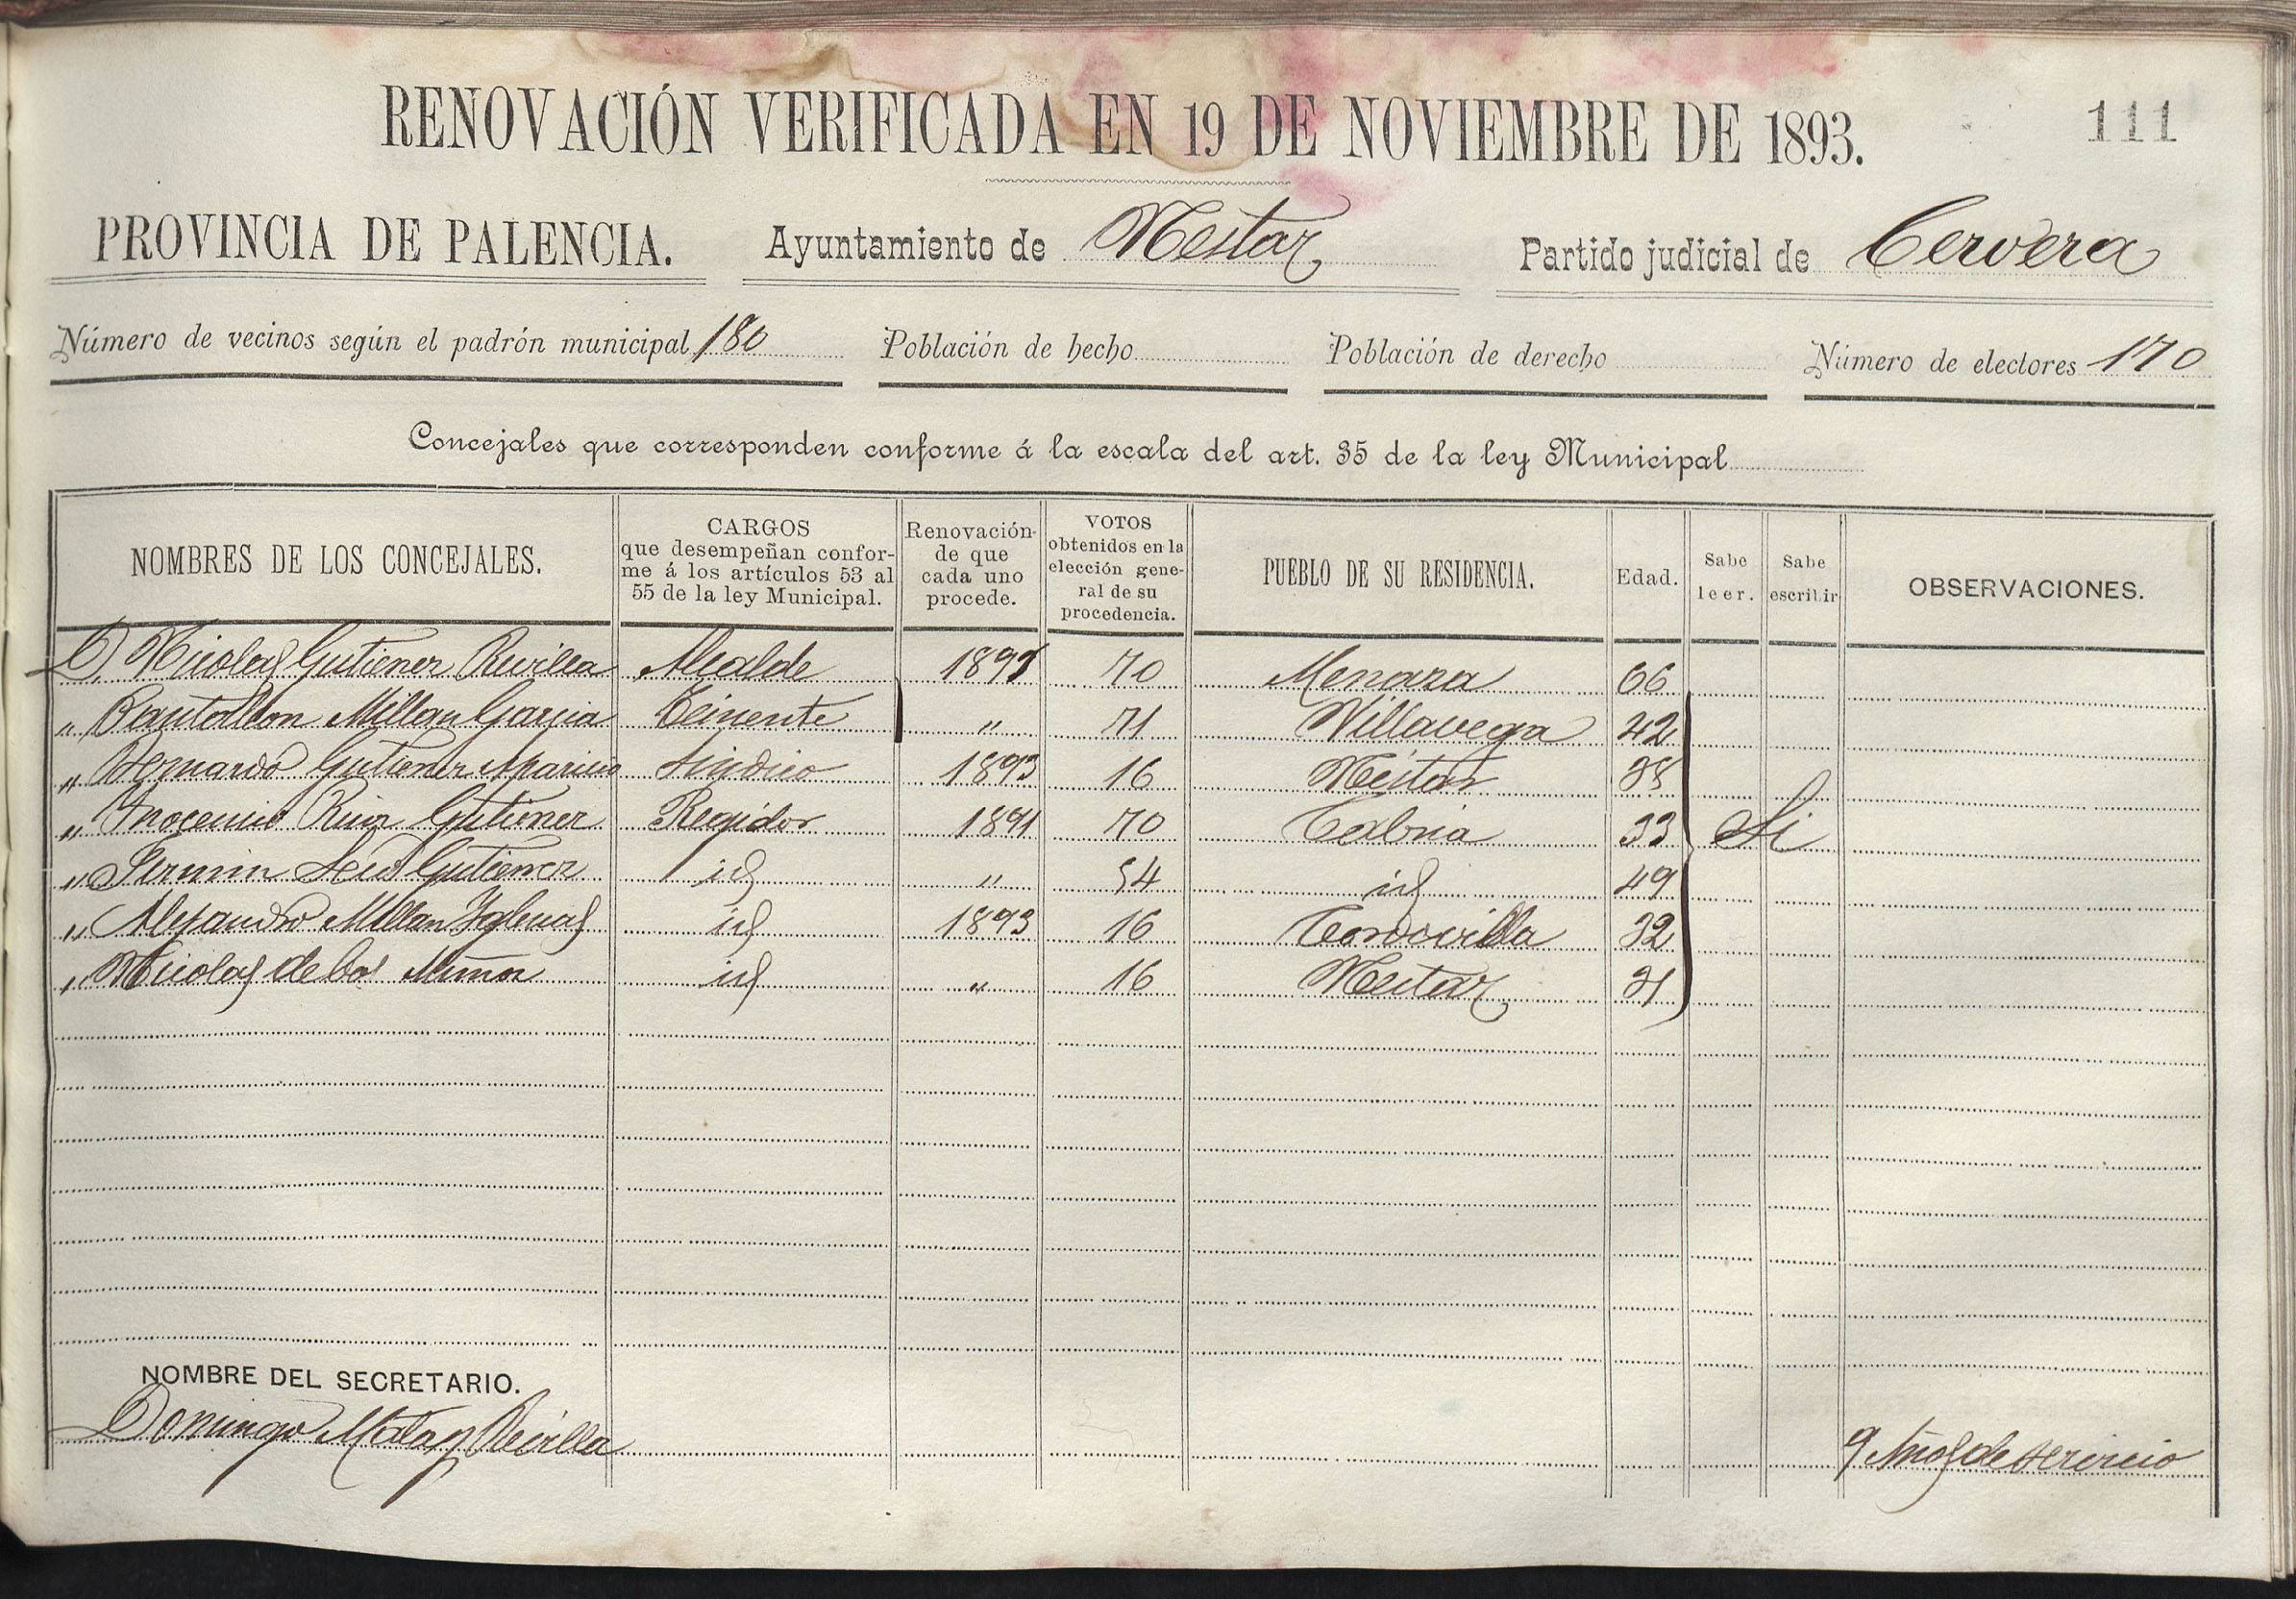 RENOVACIÓN VERIFICADA EN 19 DE NOVIEMBRE DE 1893.
111
PROVINCIA DE PALENCIA. Ayuntamiento de Nestar Partido judicial de Cervera
Número de vecinos según el padrón municipal 180 Población de hecho Población de derecho Número de electores 170
Concejales que corresponden conforme á la escala del art. 35 de la ley Municipal
NOMBRES DE LOS CONCEJALES.
CARGOS
que desempeñan confor-
me á los artículos 53 al
55 de la ley Municipal.
Renovación
de que
cada uno
procede.
VOTOS
obtenidos en la
elección gene-
ral de su
procedencia.
PUEBLO DE SU RESIDENCIA.
Edad.
Sabe
leer.
Sabe
escribir
OBSERVACIONES.
D. Nicolas Gutierrez Revilla Alcalde 1891 70 Menaza 66
„ Pantalleon Millan Garcia Teniente „ 71 Villavega 42
„ Bernardo Gutierrez Sindico 1893 16 Nestar
„ Inocencio Ruiz Gutierrez Regidor 1891 70 Cabria 33 Si
„ Fermin Gutierrez id „ 54 id 49
„ Alejandro Millan Yglesias id 1893 16 Cordovilla 32
„ Nicolas de Cos id „ 16 Nestar
NOMBRE DEL SECRETARIO.
Domingo Revilla 9 Años de servicio